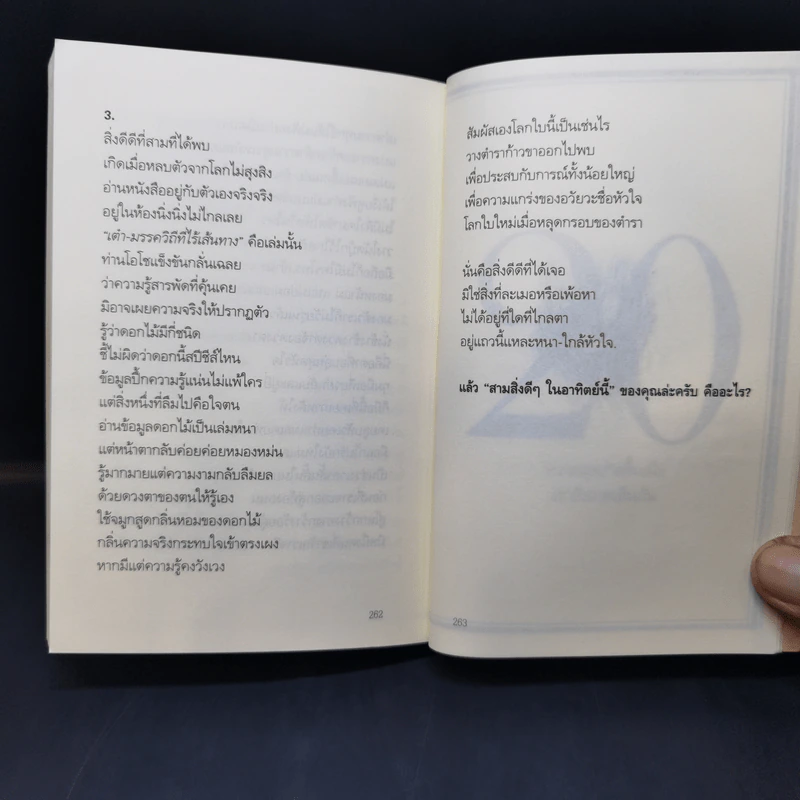 3.
สิ่งดีดีที่สามที่ได้พบ
เกิดเมื่อหลบตัวจากโลกไม่สุงสิง
อ่านหนังสืออยู่กับตัวเองจริงจริง
อยู่ในห้องนิ่งนิ่งไม่ไกลเลย
"เต๋า-มรรควิถีที่ไร้เส้นทาง" คือเล่มนั้น
ท่านโอโชแข็งขันกลั่นเฉลย
ว่าความรู้สารพัดที่คุ้นเคย
มิอาจเผยความจริงให้ปรากฏตัว
รู้ว่าดอกไม้มีกี่ชนิด
ชี้ไม่ผิดว่าดอกนี้สปีชีส์ไหน
ข้อมูลปึ้กความรู้แน่นไม่แพ้ใคร
แต่สิ่งหนึ่งที่ลืมไปคือใจตน
อ่านข้อมูลดอกไม้เป็นเล่มหนา
แต่หน้าตากลับค่อยค่อยหมองหม่น
รู้มากมายแต่ความงามกลับลืมยล
ด้วยดวงตาของตนให้รู้เอง
ใช้จมูกสูดกลิ่นหอมของดอกไม้
กลิ่นความจริงกระทบใจเข้าตรงเผง
หากมีแต่ความรู้คงวังเวง
262
สัมผัสเองโลกใบนี้เป็นเช่นไร
วางตำราก้าวขาออกไปพบ
เพื่อประสบกับการณ์ทั้งน้อยใหญ่
เพื่อความแกร่งของอวัยวะชื่อหัวใจ
โลกใบใหม่เมื่อหลุดกรอบของตำรา
นั่นคือสิ่งดีดีที่ได้เจอ
มิใช่สิ่งที่ละเมอหรือเพ้อหา
ไม่ได้อยู่ที่ใดที่ไกลตา
อยู่แถวนี้แหละหนา-ใกล้หัวใจ.
แล้ว "สามสิ่งดีๆ ในอาทิตย์นี้" ของคุณล่ะครับ คืออะไร?
263